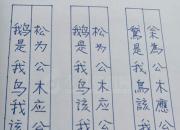 為公木應公
是我鳥該我
松为公木应公
鹅是我鸟该我
松为公木应公
鹅是我鸟该我